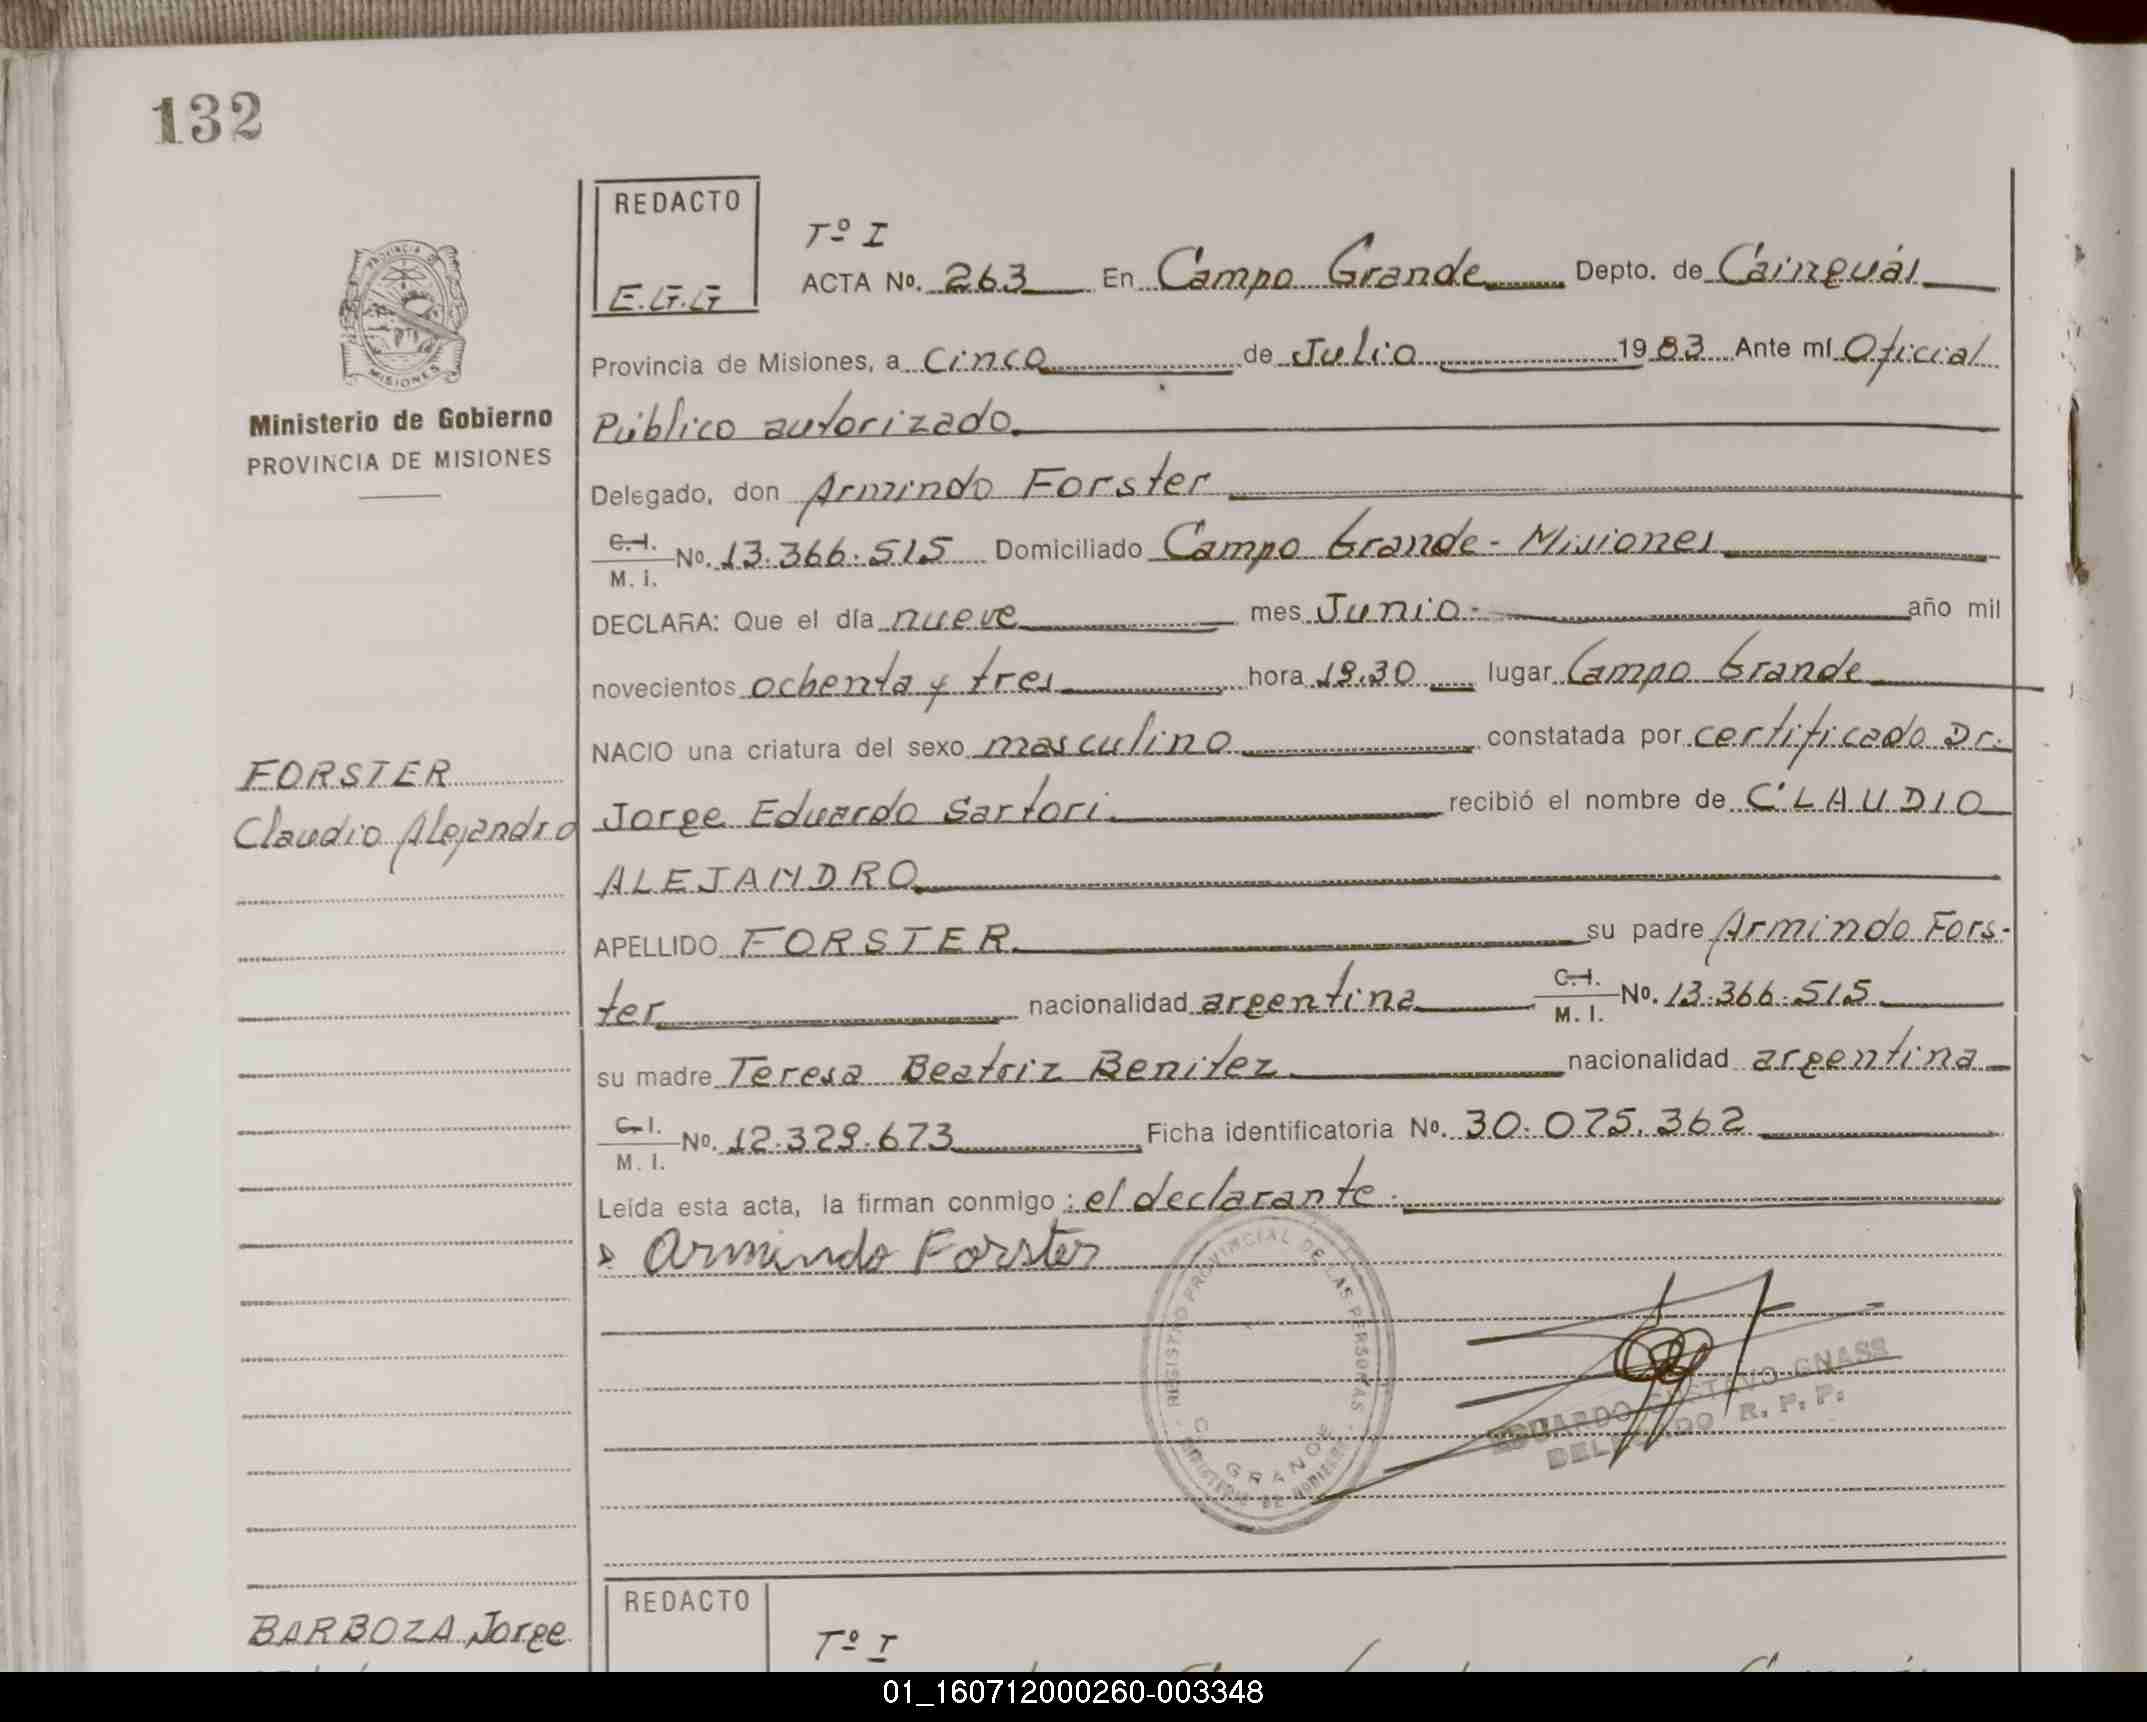 132
REDACTO
E.G.G
PROVINCIA DE
MISIONES
Ministerio de Gobierno
PROVINCIA DE MISIONES
Tº I
ACTA Nº. 263 En Campo Grande Depto. de Cainguás
Provincia de Misiones, a cinco de Julio 1983 Ante mí Oficial
Público autorizado
Delegado, don Armindo Forster
C.I. M. I. Nº. 13.366.515 Domiciliado Campo Grande - Misiones
DECLARA: Que el día nueve mes Junio.- año mil
novecientos ochenta y tres hora 19.30 lugar Campo Grande
NACIO una criatura del sexo masculino constatada por certificado Dr.
FORSTER
Claudio Alejandro
Jorge Eduardo Sartori recibió el nombre de CLAUDIO
ALEJANDRO
APELLIDO FORSTER su padre Armindo Fors-
ter nacionalidad argentina C.I. M. I. Nº. 13.366.515
su madre Teresa Beatriz Benitez nacionalidad argentina
C.I. M. I. Nº. 12.329.673 Ficha identificatoria Nº. 30.075.362
Leída esta acta, la firman conmigo: el declarante.
Armindo Forster
REGISTRO PROVINCIAL DE LAS PERSONAS
C. GRANDE
MINISTERIO DE GOBIERNO
EDUARDO GUSTAVO GNASS
DELEGADO R. P. P.
REDACTO
Tº I
BARBOZA Jorge
01_160712000260-003348